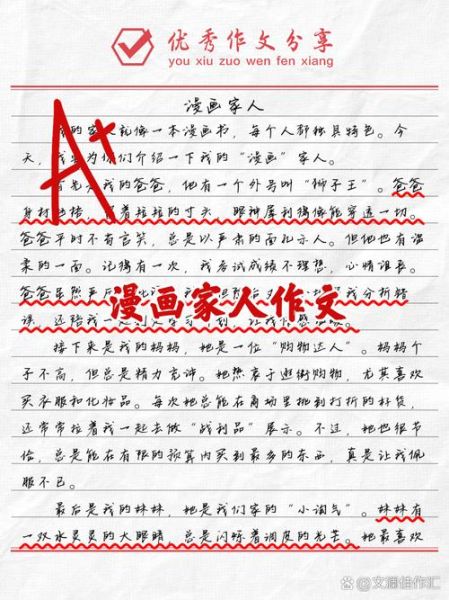 优秀作文分享
you xiu zuo wen fen xiang
漫画家人
A+
的家就像一本漫画书，每个人都独具特色。今
天，我为你们介绍一下我的“漫画”家人。
首先是我的爸爸，他有一个外号叫“狮子王”。爸爸
身材，着短短的寸头，眼神犀利得像能穿透一切。
爸爸平时不苟言笑，总是以严肃的面孔示人。但他也有温
柔的一面。记得有一次，我考试成绩不理想，心情沮丧。
爸爸虽然严厉，我分析错
漫画家人作文
误，还陪我一起
接下来是我的妈妈，她是一位“购物达人”。妈妈个
子不高，但总是精力充沛。她热衷于逛街购物，尤其喜欢
买衣服和化妆品。每次她总能在商场里挑到打折的好货，
还常常拉着我一起去做“战利品”展示。不过，她也很节
俭，总是能在有限的预算内买到最多的东西，真是让我佩
服不已。
最后是我的妹妹，她是我们家的“小淘气”。妹妹有
一双水灵灵的大眼睛，总是闪烁着调皮的光芒。她最喜欢
@文涯佳作汇